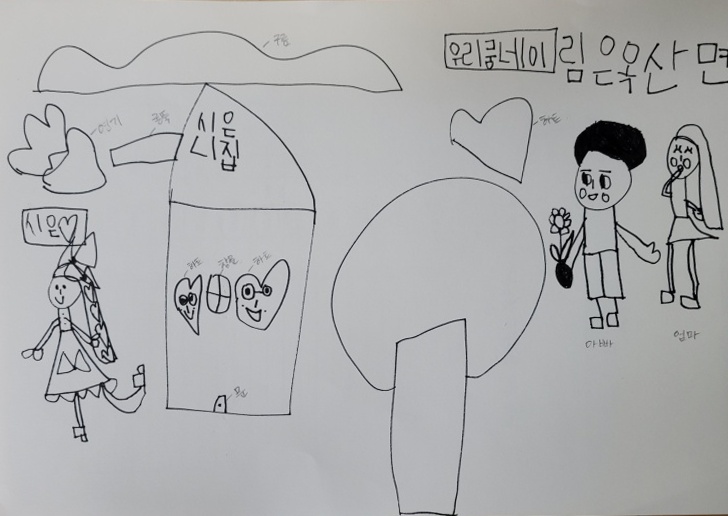 구름
우리 동네 이
림은옥산면
연기
굴뚝
하트
시은
니집
시은♡
하트
창문
하트
문
아빠
엄마